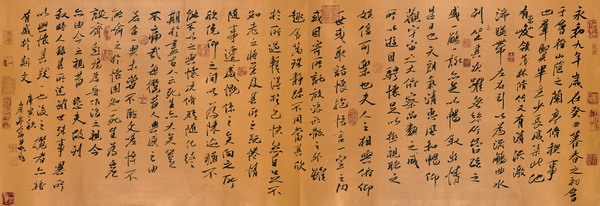 永和九年歲在癸丑暮春之初會
于會稽山陰之蘭亭脩禊事
也羣賢畢至少長咸集此地
有崇山峻領茂林脩竹又有清流激
湍暎帶左右引以為流觴曲水
列坐其次雖無絲竹管弦之
盛一觴一詠亦足以暢敘幽情
是日也天朗氣清惠風和暢仰
觀宇宙之大俯察品類之盛
所以遊目騁懷足以極視聽之
娛信可樂也夫人之相與俯仰
一世或取諸懷抱悟言一室之內
或因寄所託放浪形骸之外雖
趣舍萬殊靜躁不同當其欣
於所遇暫得於己快然自足不
知老之將至及其所之既惓情
隨事遷感慨係之矣向之所
欣俛仰之間以為陳迹猶不
能不以之興懷況脩短隨化終
期於盡古人云死生亦大矣豈
不痛哉每攬昔人興感之由
若合一契未嘗不臨文嗟悼不
能喻之於懷固知一死生為虛
誕齊彭殤為妄作後之視今
亦由今之視昔悲夫故列
敘時人錄其所述雖世殊事異所
以興懷其致一也後之覽者亦將
有感於斯文